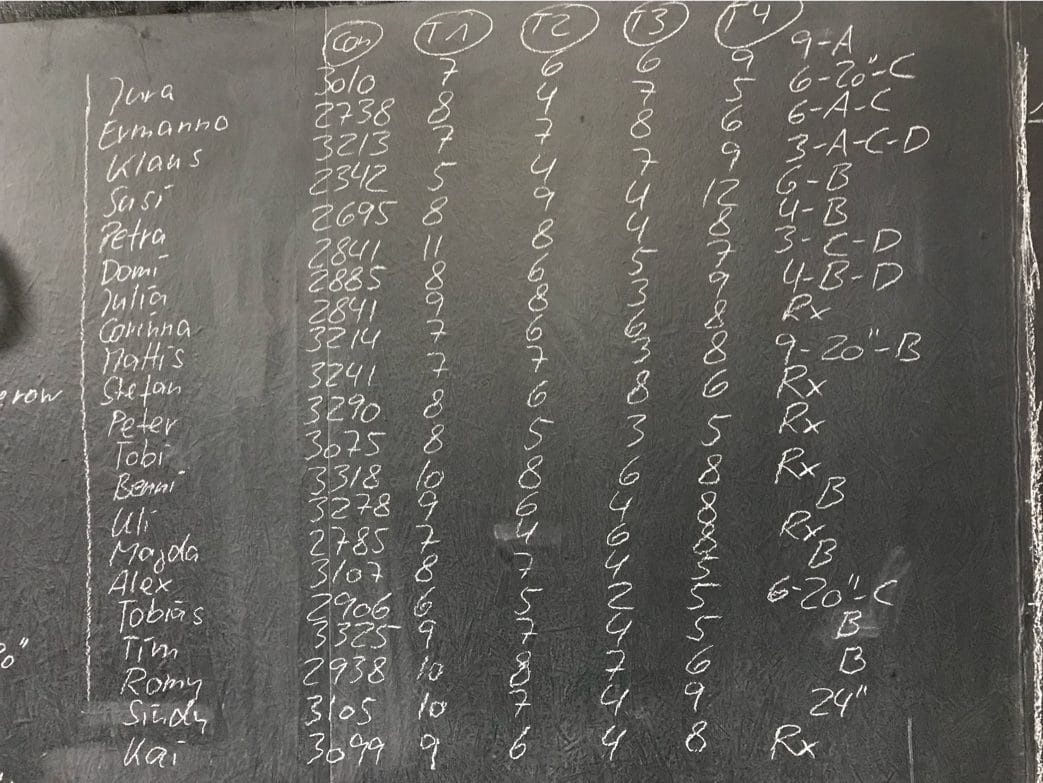 Con T1 T2 T3 T4
Jura 3010 7 6 6 9 9-A
Ermanno 2738 8 4 7 5 6-20"-C
Klaus 3213 7 7 8 6 6-A-C
Susi 2342 5 4 7 9 3-A-C-D
Petra 2695 8 9 4 12 6-B
Domi 2841 11 8 4 8 4-B
Julia 2885 8 6 5 7 3-C-D
Corinna 2841 9 8 3 9 4-B-D
Mattis 3214 7 6 6 8 Rx
Stefan 3241 7 7 3 8 9-20"-B
Peter 3290 8 6 8 6 Rx
Tobi 3075 8 5 3 5 Rx
Benni 3318 10 8 6 8 Rx
Uli 3278 9 6 4 8 B
Magda 2785 7 4 6 8 Rx
Alex 3107 8 7 4 5 B
Tobias 2906 6 5 2 5 6-20"-C
Tim 3325 9 7 4 5 B
Romy 2938 10 8 7 6 B
Sindy 3105 10 7 4 9 24"
Kai 3099 9 6 4 8 Rx